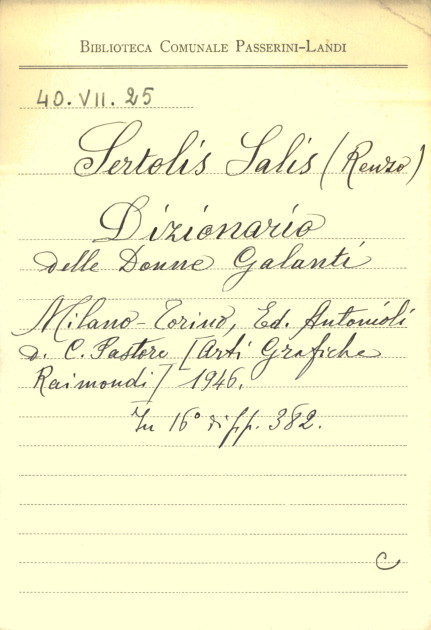 BIBLIOTECA COMUNALE PASSERINI-LANDI
40.VII.25
Sertolis Salis (Renzo)
Dizionario
delle Donne Galanti
Milano-Torino, Ed. Antonioli
d. C. Pastore [Arti Grafiche
Raimondi] 1946.
In 16° di pp. 382.
C